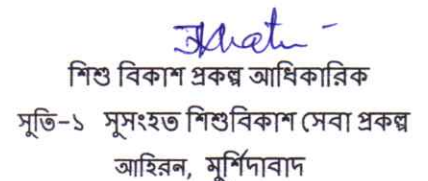 শিশু বিকাশ প্রকল্প আধিকারিক
সূতি-১ সূসংহত শিশুবিকাশ সেবা প্রকল্প
আহিরন, মূর্শিদাবাদ